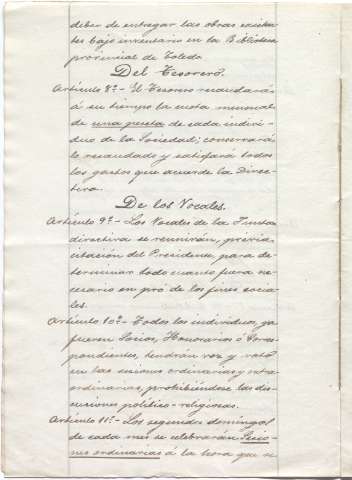 deber de entregar las obras existen-
tes bajo inventario en la Biblioteca
provincial de Toledo
Del Tesorero.
Artículo 8º.- El Tesorero recaudará
á su tiempo la cuota mensual
de una peseta de cada indivi-
duo de la Sociedad; conservará
lo recaudado y satisfará todos
los gastos que acuerde la Direc-
tiva.
De los Vocales.
Artículo 9º.- Los Vocales de la Junta
directiva se reunirán, previa
citación del Presidente, para de-
terminar todo cuanto fuera ne-
cesario en pró de los fines socia-
les.
Artículo 10º.- Todos los individuos, ya
fueren Socios, Honorarios ó Corres-
pondientes, tendrán voz y voto
en las sesiones ordinarias y extra-
ordinarias, prohibiéndose las dis-
cusiones político-religiosas.
Artículo 11º.- Los segundos domingos
de cada mes se celebrarán Sesio-
nes ordinarias á la hora que se